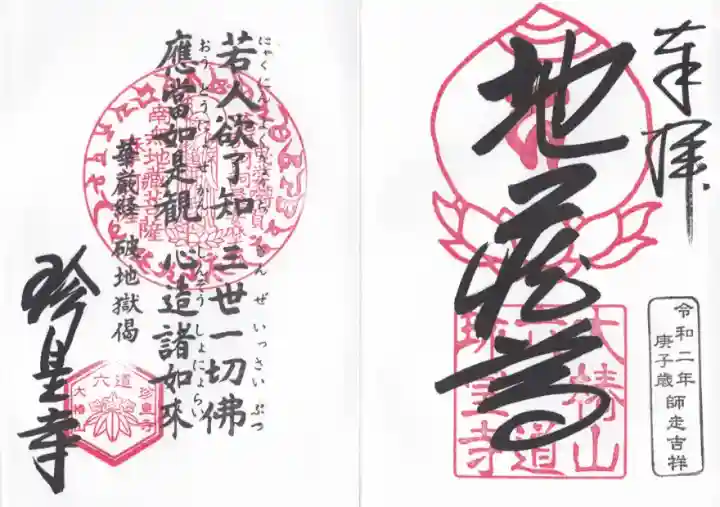 奉拝
地蔵尊
大椿山
六道
珍皇寺
令和二年
庚子歳師走吉祥
若人欲了知 三世一切佛
にゃくにんよくりょうち さんぜいっさいぶつ
應當如是觀 心造諸如來
おうとうにょぜかん しんぞうしょにょらい
華厳経 破地獄偈
南無地蔵菩薩
珍皇寺
六道
珍皇寺
大椿山